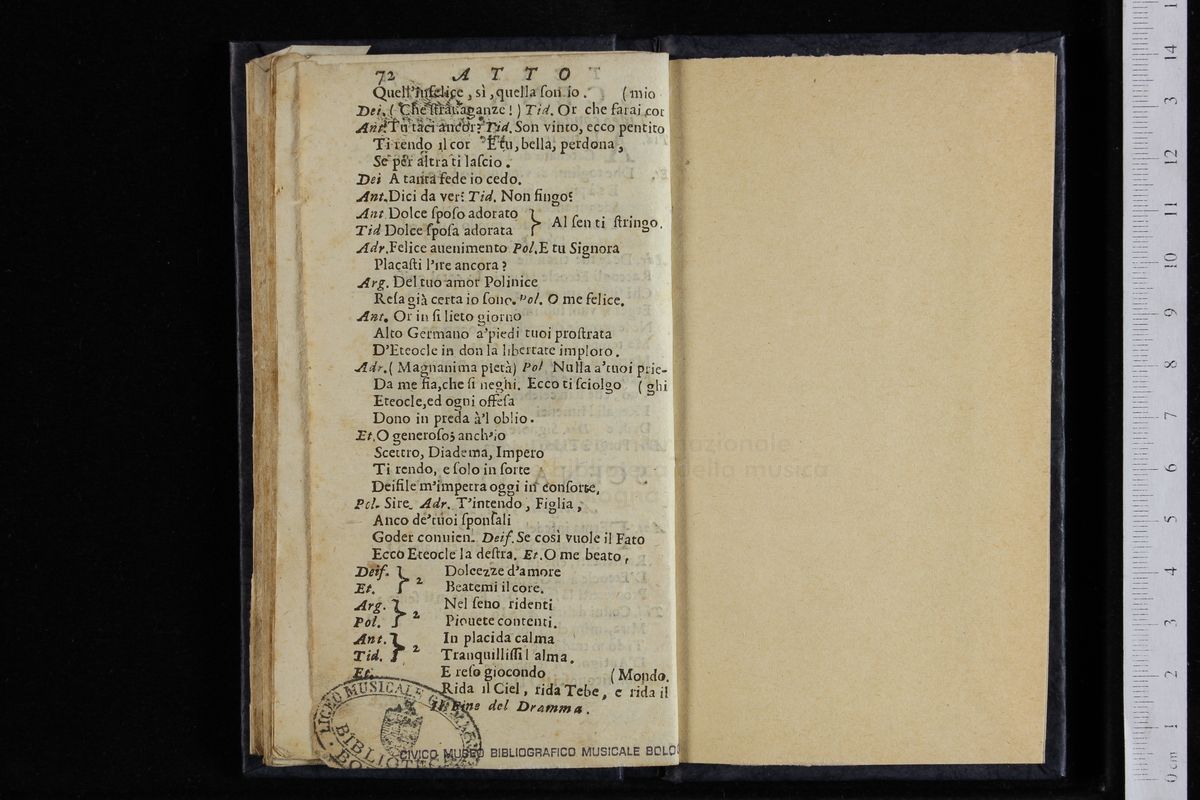 72 ATTO
Quell'infelice, sì, quella son io. (mio
Dei. (Che strauaganze!) Tid. Or che farai cor
Ant. Tu taci ancor? Tid. Son vinto, ecco pentito
Ti rendo il cor E tu, bella, perdona,
Se per altra ti lascio.
Dei A tanta fede io cedo.
Ant. Dici da ver? Tid. Non fingo?
Ant Dolce sposo adorato
Tid Dolce sposa adorata } Al sen ti stringo.
Adr. Felice auenimento Pol. E tu Signora
Placasti l'ire ancora?
Arg. Del tuo amor Polinice
Resa già certa io sono. Pol. O me felice.
Ant. Or in sì lieto giorno
Alto Germano a'piedi tuoi prostrata
D'Eteocle in don la libertate imploro.
Adr. (Magnanima pietà) Pol Nulla a'tuoi prie-
Da me fia, che si neghi. Ecco ti sciolgo (ghi
Eteocle, ed ogni offesa
Dono in preda à'l oblio.
Et. O generoso; anch'io
Scettro, Diadema, Impero
Ti rendo, e solo in sorte
Deifile m'impetra oggi in consorte,
Pol. Sire. Adr. T'intendo, Figlia,
Anco de'tuoi sponsali
Goder conuien. Deif. Se così vuole il Fato
Ecco Eteocle la destra. Et. O me beato,
Deif. } 2 Dolcezze d'amore
Et. Beatemi il core.
Arg. } 2 Nel seno ridenti
Pol. Piouete contenti.
Ant. } 2 In placida calma
Tid. Tranquillissi l alma.
Et. E reso giocondo (Mondo.
Rida il Ciel, rida Tebe, e rida il
Il Fine del Dramma.
LICEO MUSICALE
BIBLIOTECA
CIVICO MUSEO BIBLIOGRAFICO MUSICALE BOLO
internazionale
biblioteca della musica